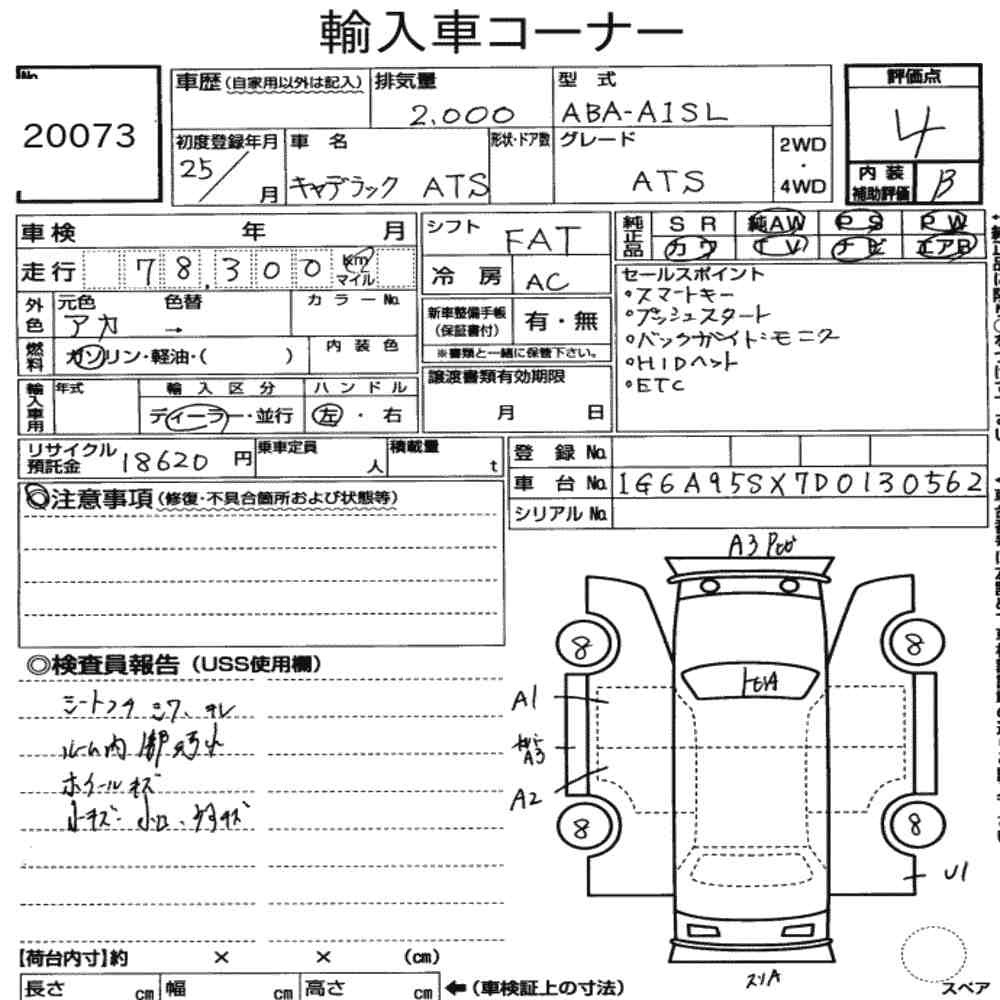 輸入車コーナー
No. 20073
車歴(自家用以外は記入) 排気量 2,000 型式 ABA-A1SL
評価点 4
初度登録年月 25/月 車名 キャデラック ATS 形状・ドア数 グレード ATS 2WD・4WD
内装補助評価 B
車検 年 月
シフト FAT
純正品 SR 純AW PS PW
カワ TV ナビ エアB
走行 78,300 km マイル
冷房 AC
セールスポイント
・スマートキー
・プッシュスタート
・バックガイドモニター
・HIDヘット
・ETC
外色 元色 アカ 色替 → カラーNo.
新車整備手帳(保証書付) 有・無
※書類と一緒に保管下さい。
燃料 ガソリン・軽油・( ) 内装色
譲渡書類有効期限
月 日
輸入車用 年式 輸入区分 ハンドル
ディーラー・並行 左・右
リサイクル預託金 18620円 乗車定員 人 積載量 t
登録No.
車台No. 1G6A95SX7D0130562
シリアルNo.
◎注意事項(修復・不具合箇所および状態等)
A3
8 8
◎検査員報告(USS使用欄)
A1
A3
A2
ホイールキズ
8 8
U1
【荷台内寸】約 × × (cm)
長さ cm 幅 cm 高さ cm ←(車検証上の寸法)
スペア